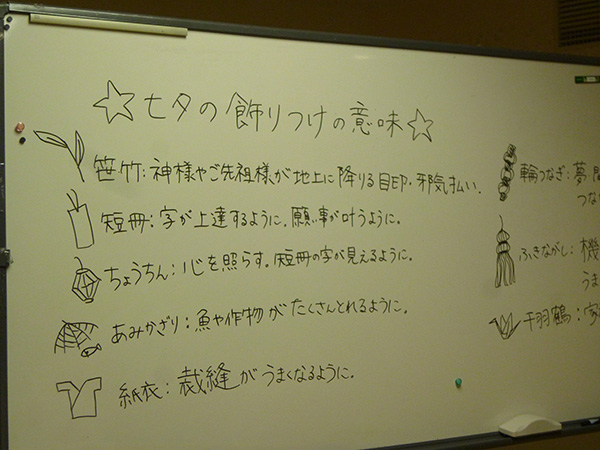 ☆七夕の飾りつけの意味☆
笹竹：神様やご先祖様が地上に降りる目印・邪気払い.
短冊：字が上達するように.願い事が叶うように。
ちょうちん：心を照らす。短冊の字が見えるように。
あみかざり：魚や作物がたくさんとれるように。
紙衣：裁縫がうまくなるように.
輪つなぎ：夢・
つな
ふきながし：機
うま
千羽鶴：